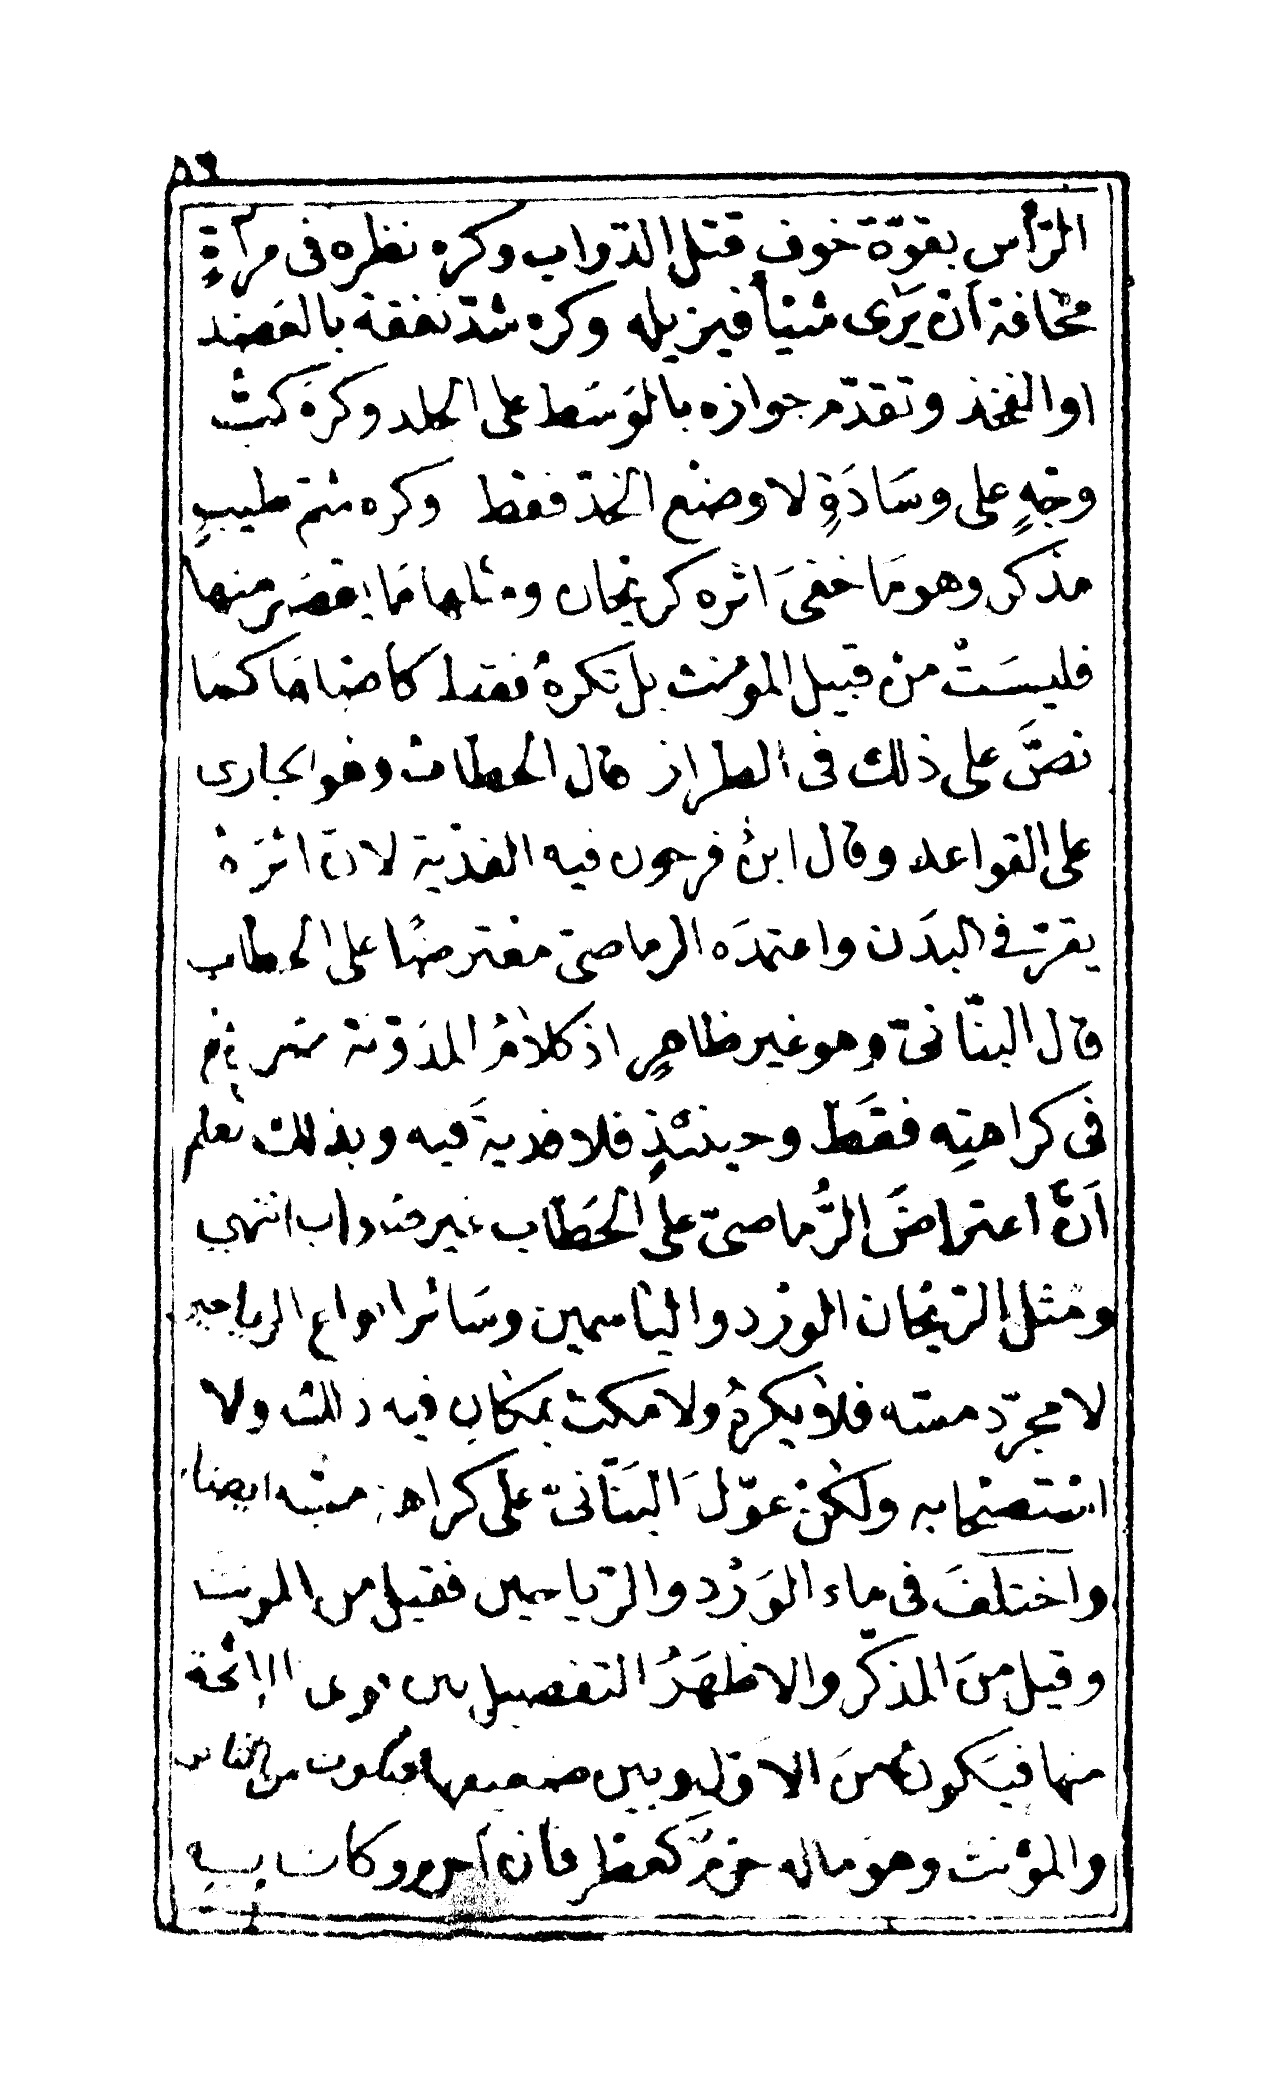 ٥٦
الرَّأس بقوّة خوف قتل الدّواب وكره نظره فى مرآةٍ
مخافة أن يَرَى شيئاً فيزيله وكره شدّ نفقة بالعَضُد
او الفخذ وتقدّم جوازه بالوَسَط على الجلد وكرَهَ كبّ
وجْهٍ على وسَادَةٍ لا وضْع الخدّ فقط وكره شم طيبٍ
مذكر وهو مَا خفىَ اثره كريحان ومثلها مَا يعصَر منها
فليسَتْ منْ قبيل المؤنث بل تكرهُ فقط كأصْلها كما
نصَّ على ذلك فى الطراز قال الحطابُ وهُو الجارى
على القواعد وقال ابنُ فرحون فيه الفدْية لانّ اثرَهُ
يقرّ فى البدَن واعتمدَه الرماصىّ معْترضًا على الحطاب
قال البنّانىّ وهو غير ظاهرٍ اذ كلامُ المدَوّنة صَريحٌ
فى كراهتِه فقَطْ وحينئذٍ فلا فدية فيه وبذلك تعلم
أنّ اعتراضَ الرُّماصىّ على الحَطّاب غير صَواب انتهى
ومثل الرّيْحان الورْد والياسمين وسَائر انواع الرياحين
لا مجرّد مسّه فلا يكرهُ ولا مَكث بمكان فيه ذلك ولا
اسْتصحابه ولكنْ عوّلَ البَنّانىّ على كراهة مسّه ايضا
واختلفَ فى ماء الوَرْد والرّياحين فقيل من المؤنث
وقيل منَ المذكّر والاظهَرُ التفصيل بين قوى الرائحة
منها فيَكون منَ الاوّل وبين ضعيفها فيكون من الثانى
والمؤنث وهو ماله جرْمٌ كعطْر فان أحرم وكان به